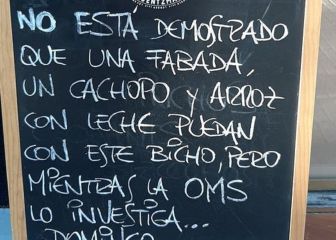 NO ESTÁ DEMOSTRADO
QUE UNA FABADA,
UN CACHOPO Y ARROZ
CON LECHE PUEDAN
CON ESTE BICHO, PERO
MIENTRAS LA OMS
LO INVESTIGA...